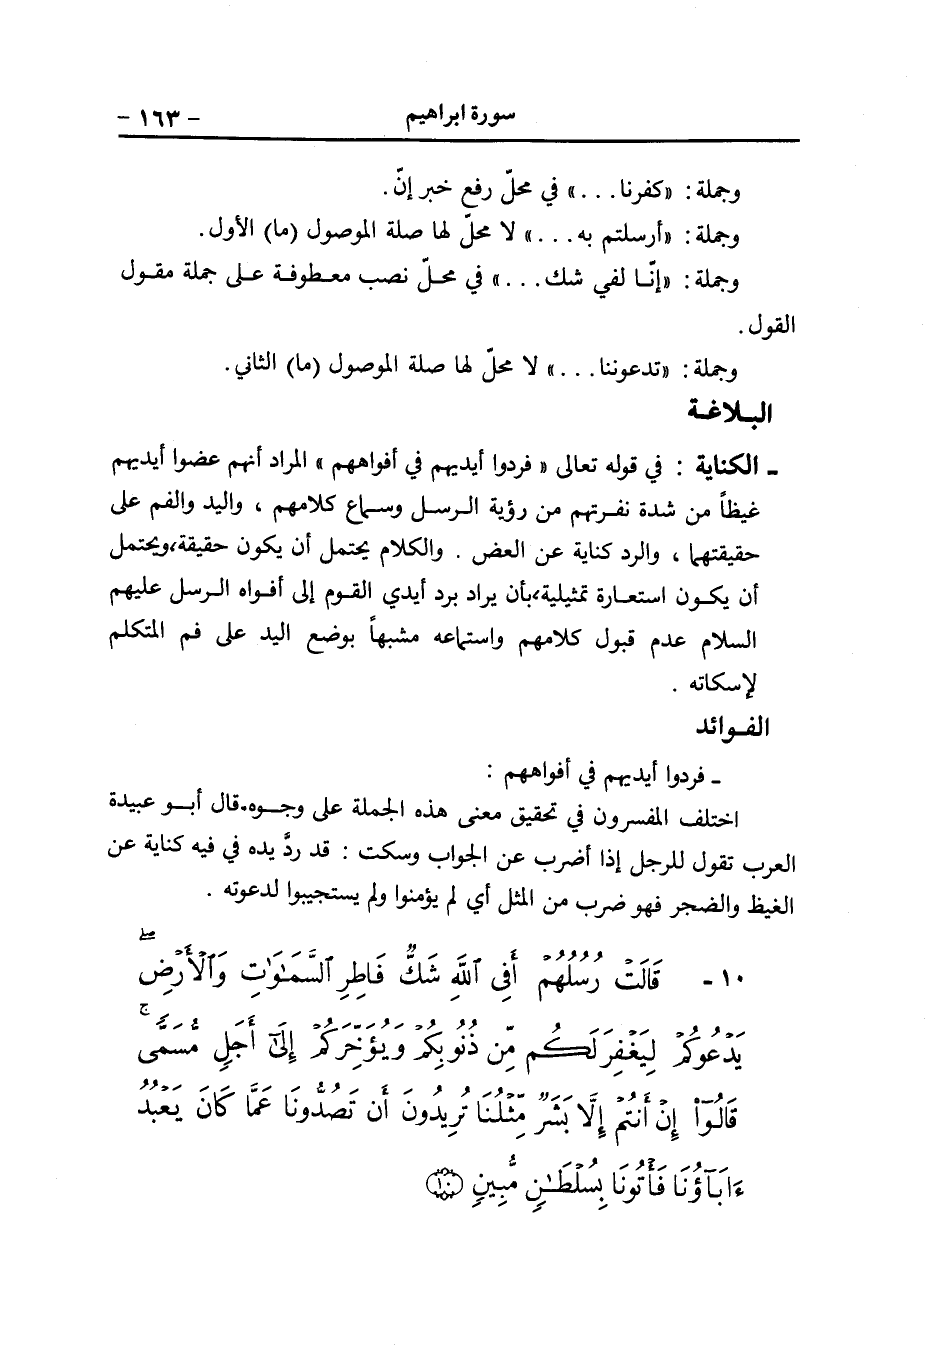 سورة ابراهيم - ١٦٣ -
وجملة: «كفرنا...» في محلّ رفع خبر إنّ.
وجملة: «أرسلتم به...» لا محلّ لها صلة الموصول (ما) الأول.
وجملة: «إنّا لفي شك...» في محلّ نصب معطوفة على جملة مقول
القول.
وجملة: «تدعوننا...» لا محلّ لها صلة الموصول (ما) الثاني.
البلاغة
ـ الكناية : في قوله تعالى « فردوا أيديهم في أفواههم » المراد أنهم عضوا أيديهم
غيظاً من شدة نفرتهم من رؤية الرسل وسماع كلامهم ، واليد والفم على
حقيقتهما ، والرد كناية عن العض . والكلام يحتمل أن يكون حقيقة،ويحتمل
أن يكون استعارة تمثيلية،بأن يراد برد أيدي القوم إلى أفواه الرسل عليهم
السلام عدم قبول كلامهم واستماعه مشبهاً بوضع اليد على فم المتكلم
لإسكاته .
الفوائد
ـ فردوا أيديهم في أفواههم :
اختلف المفسرون في تحقيق معنى هذه الجملة على وجوه.قال أبو عبيدة
العرب تقول للرجل إذا أضرب عن الجواب وسكت : قد ردَّ يده في فيه كناية عن
الغيظ والضجر فهو ضرب من المثل أي لم يؤمنوا ولم يستجيبوا لدعوته .
١٠ - قَالَتْ رُسُلُهُمْ أَفِى ٱللَّهِ شَكٌّ فَاطِرِ ٱلسَّمَٰوَٰتِ وَٱلْأَرْضِ ۖ
يَدْعُوكُمْ لِيَغْفِرَ لَكُم مِّن ذُنُوبِكُمْ وَيُؤَخِّرَكُمْ إِلَىٰٓ أَجَلٍ مُّسَمًّى ۚ
قَالُوٓا۟ إِنْ أَنتُمْ إِلَّا بَشَرٌ مِّثْلُنَا تُرِيدُونَ أَن تَصُدُّونَا عَمَّا كَانَ يَعْبُدُ
ءَابَآؤُنَا فَأْتُونَا بِسُلْطَٰنٍ مُّبِينٍ ﴿١٠﴾